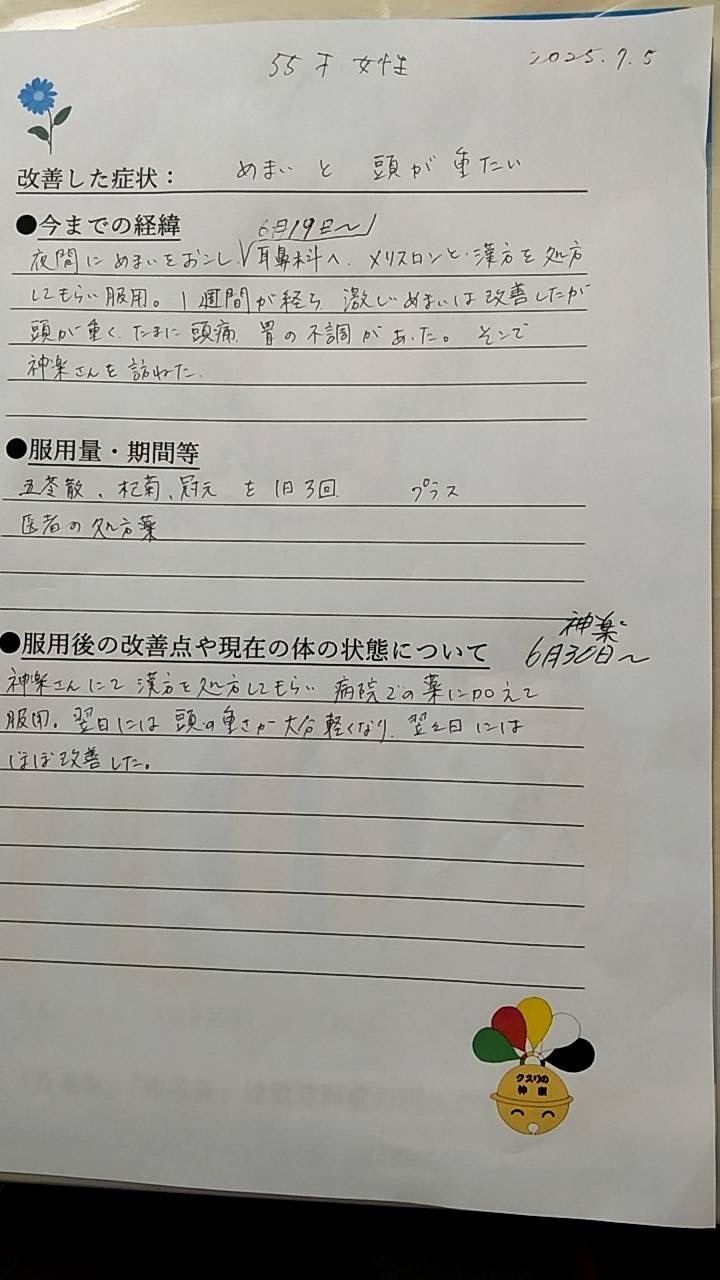 55才 女性 2025.7.5
改善した症状： めまいと 頭が重たい
●今までの経緯 6月19日〜
夜間にめまいをおこし、耳鼻科へ、メリスロンと漢方を処方
してもらい服用。1週間が経ち 激しいめまいは改善したが
頭が重く、たまに頭痛、胃の不調があった。 そこで
神楽さんを訪ねた、
●服用量・期間等
五苓散、杞菊、冠元 を 1日3回 プラス
医者の処方薬
●服用後の改善点や現在の体の状態について
神楽に
6月30日〜
神楽さんにて漢方を処方してもらい 病院での薬に加えて
服用。翌日には頭の重さが大分軽くなり、翌々日には
ほぼ改善した。
クスリの
神楽